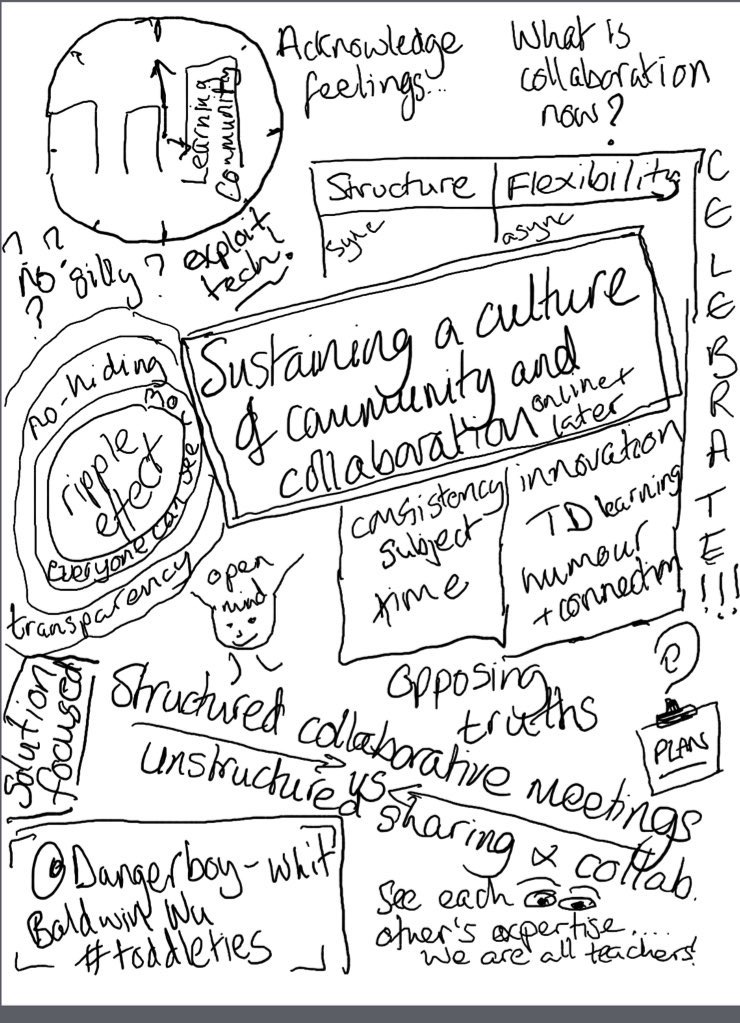 Learning
Community
Acknowledge
feelings...
What is
collaboration
now?
Structure
Flexibility
sync
async
CELEBRATE!!!
exploit
tech!
? ?
no silly ?
?
Sustaining a culture
of community and
collaboration
online +
later
no-hiding
ripple
effect
everyone can see
transparency
consistency
subject
time
innovation
TD learning
humour
+ connection
open
mind
opposing
truths
PLAN
Solution
focused
Structured collaborative meetings
vs
unstructured sharing & collab.
@Dangerboy - Whit
Baldwin Wu
#toddleties
See each
other's expertise....
we are all teachers!